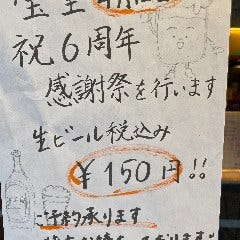 祝6周年
感謝祭を行います
生ビール税込み
¥150円!!
ご予約承ります